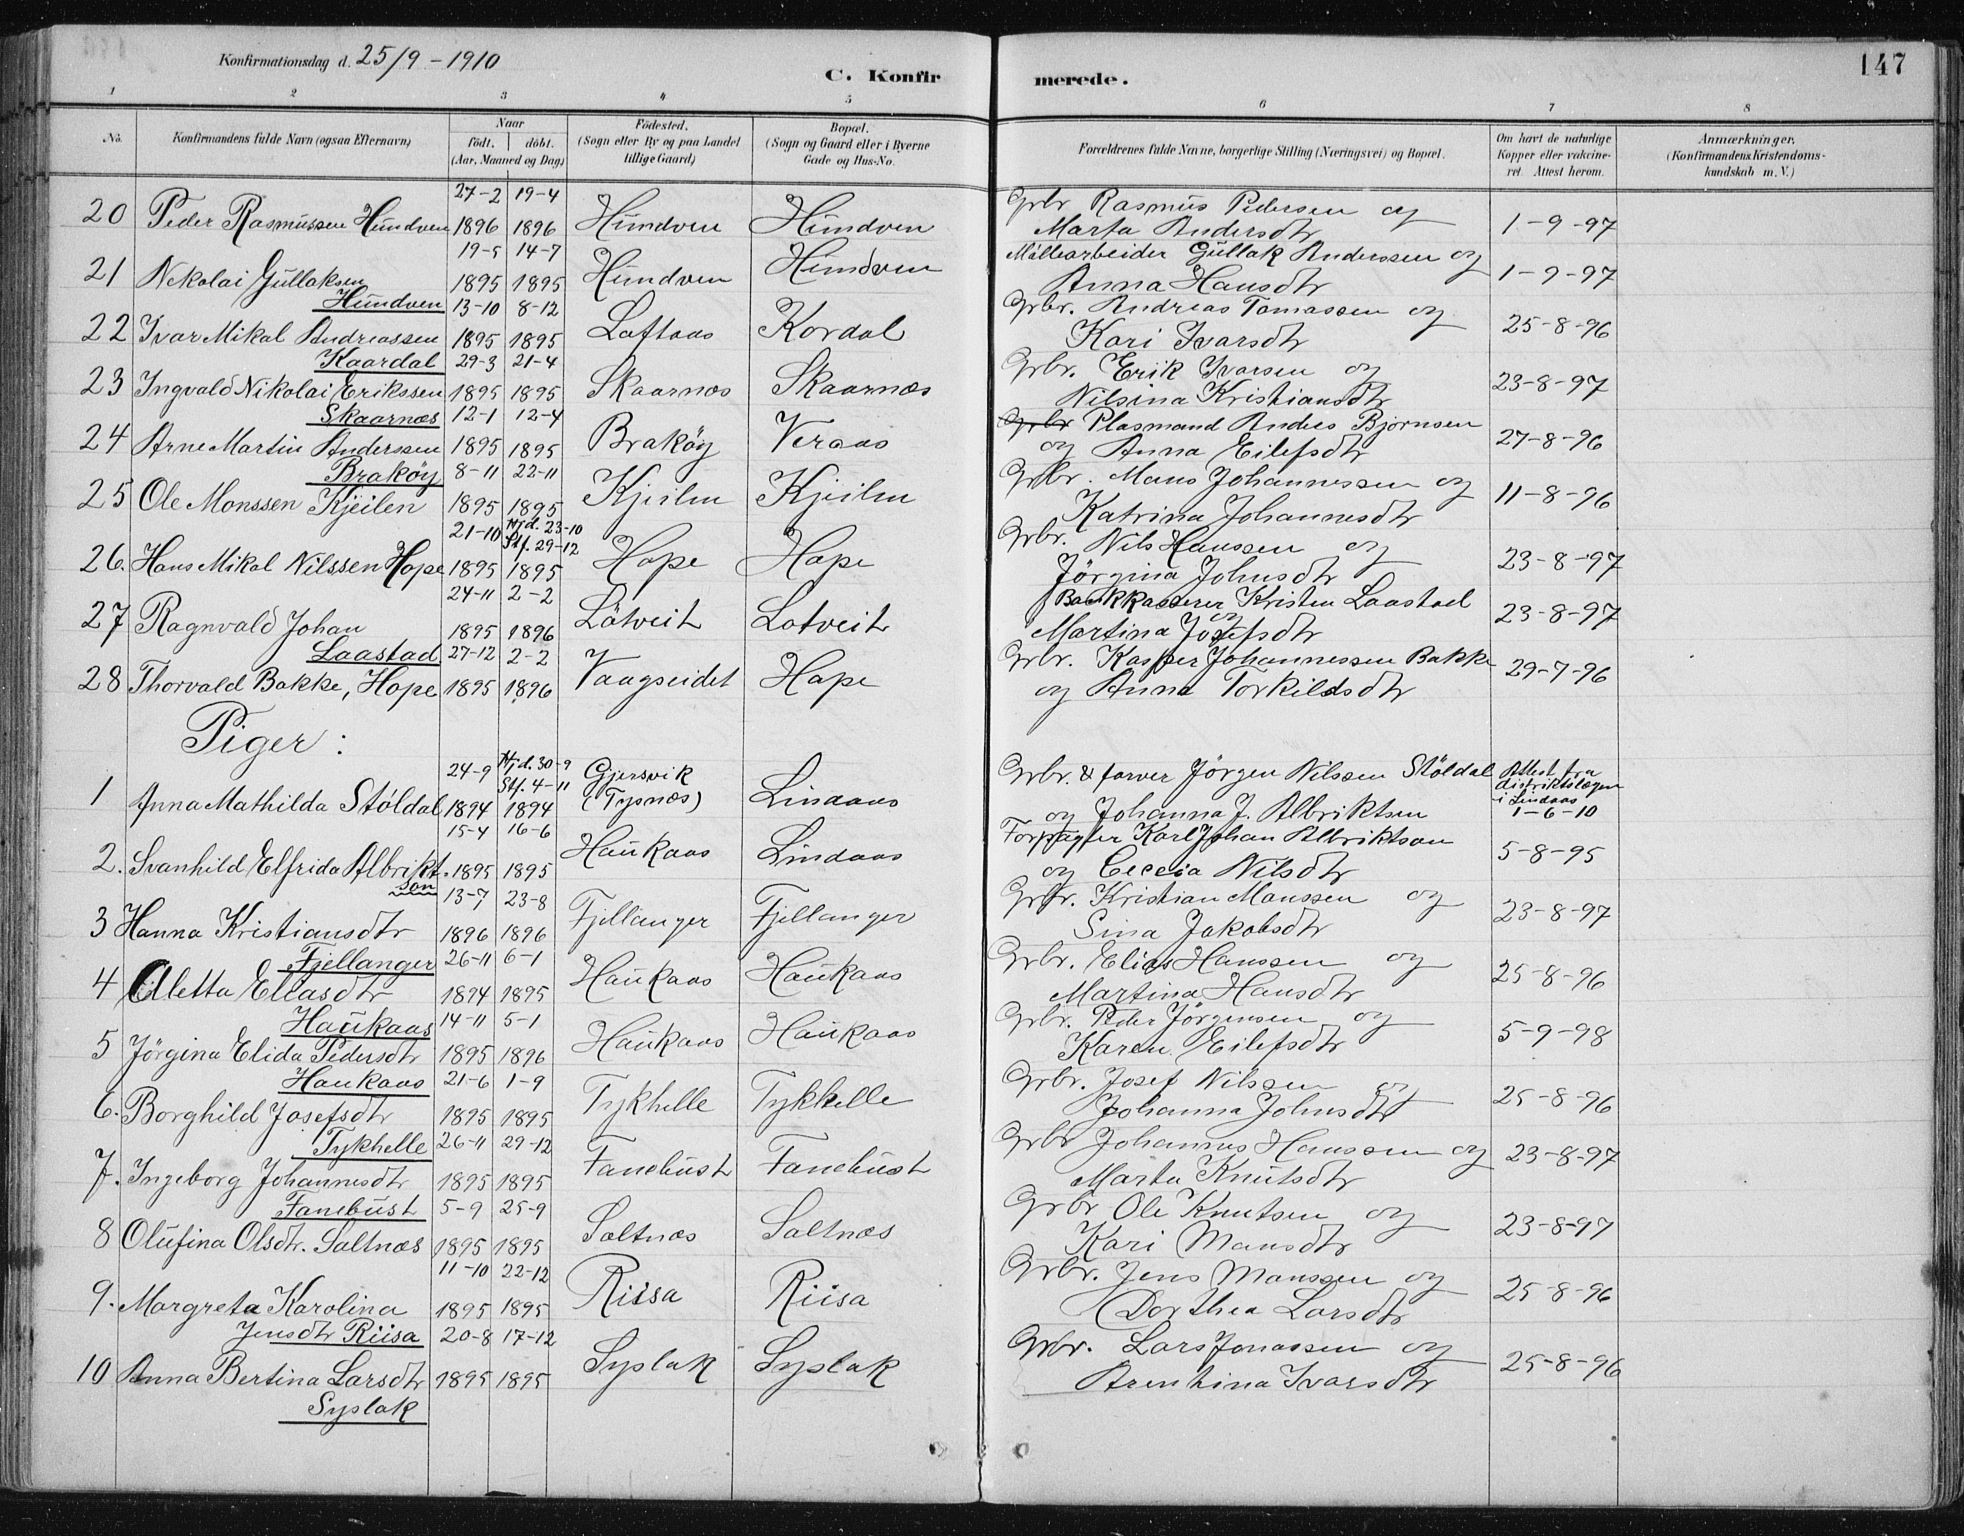 Konfirmationsdag d. 25/9 - 1910
C. Konfirmerede.
147
1 2 3 4 5 6 7 8
No.
Konfirmandens fulde Navn (ogsaa Efternavn)
Naar
födt. döbt.
(Aar, Maaned og Dag)
Födested.
(Sogn eller By og paa Landet
tillige Gaard)
Bopæl.
(Sogn og Gaard eller i Byerne
Gade og Hus-No.
Forældrenes fulde Navne, borgerlige Stilling (Næringsvei) og Bopæl.
Om havt de naturlige
Kopper eller vakcine-
ret. Attest herom.
Anmærkninger.
(Konfirmandens Kristendoms-
kundskab m. V.)
27-2 19-4 Grbr Rasmus Pedersen og
20 Peder Rasmussen Hundven 1896 1896 Hundven Hundven Marta Andersdtr 1-9-97
19-5 14-7 Möllearbeider Gullak Anderssen og
21 Nikolai Gullaksen 1895 1895 Hundven Hundven Anna Hansdtr 1-9-97
Hundven 13-10 8-12 Grbr. Andreas Tomassen og
22 Ivar Mikal Andreassen 1895 1895 Loftaas Kordal Kari Ivarsdtr 25-8-96
Kaardal 29-3 21-4 Grbr. Erik Ivarsen og
23 Ingvald Nikolai Erikssen 1895 1895 Skaarnæs Skaarnæs Nilsina Kristiansdtr 23-8-97
Skaarnæs 12-1 12-4 Grbr Plasmand Andres Björnsen
24 Arne Martin Anderssen 1895 1895 Braköy Veraas og Anna Eilefsdtr 27-8-96
Braköy 8-11 22-11 Grbr. Mons Johannessen og
25 Ole Monssen Kjeilen 1895 1895 Kjeilen Kjeilen Katrina Johannesdtr 11-8-96
21-10 Hjd. 23-10 Stf. 29-12 Grbr. Nils Hanssen og
26. Hans Mikal Nilssen Hope 1895 1895 Hope Hope Jörgina Johnsdtr 23-8-97
24-11 2-2 Bankkasserer Kristen Laastad
27 Ragnvald Johan 1895 1896 Lötveit Lotveit og Martina Josefsdtr 23-8-97
Laastad 27-12 2-2 Grbr. Kasper Johannessen Bakke
28 Thorvald Bakke, Hope 1895 1896 Vaagseidet Hope og Anna Torkildsdtr 29-7-96
Piger:
24-9 Hjd. 30-9 Stf. 4-11 Gjersvik Grbr. & farver Jörgen Nilssen Stöldal Attest fra
distriktslægen
i Lindaas
1 Anna Mathilda Stöldal 1894 1894 (Tysnæs) Lindaas og Johanna J. Albriktsen 1-6-10
15-4 16-6 Forpagter Karl Johan Albriktson
2. Svanhild Elfrida Albrikt- 1895 1895 Haukaas Lindaas og Nilsdtr 5-8-95
son 13-7 23-8 Grbr. Kristian Monssen og
3 Hanna Kristiansdtr 1896 1896 Fjellanger Fjellanger Sina Jakobsdtr 23-8-97
Fjellanger 26-11 6-1 Grbr. Elias Hanssen og
4 Aletta Eliasdtr 1894 1895 Haukaas Haukaas Martina Hansdtr 25-8-96
Haukaas 14-11 5-1 Grbr. Peder Jörgensen og
5 Jörgina Elida Pedersdtr 1895 1896 Haukaas Haukaas Karen Eilefsdtr 5-9-98
Haukaas 21-6 1-9 Grbr. Josef Nilssen og
6. Borghild Josefsdtr 1895 1895 Tykhelle Tykhelle Johanna Johnsdtr 25-8-96
Tykhelle 26-11 29-12 Grbr Johannes Hanssen og
7. Ingeborg Johannesdtr 1895 1895 Fanebust Fanebust Marta Knutsdtr 23-8-97
Fanebust 5-9 25-9 Grbr Ole Knutsen og
8 Olufina Olsdtr. Saltnæs 1895 1895 Saltnæs Saltnæs Kari Monsdtr 23-8-97
11-10 22-12 Grbr. Jens Monssen og
9. Margreta Karolina 1895 1895 Riisa Riisa Dorthea Larsdtr 25-8-96
Jensdtr Riisa 20-8 17-12 Grbr. Lars Jonassen og
10 Anna Bertina Larsdtr 1895 1895 Syslak Syslak Arentina Ivarsdtr 25-8-96
Syslak